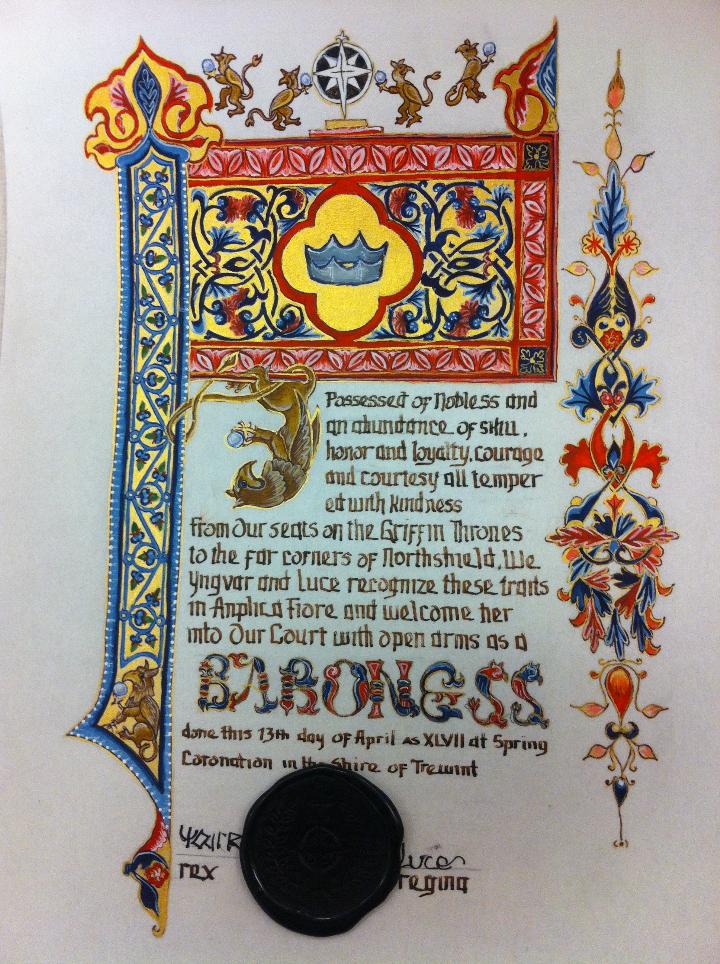 Possessed of Nobless and
an abundance of skill,
honor and loyalty, courage
and courtesy all temper
ed with kindness
from Our seats on the Griffin Thrones
to the far corners of Northshield, We
Yngvar and Luce recognize these traits
in Anplica Fiore and welcome her
into Our Court with open arms as a
BARONESS
done this 13th day of April as XLVII at Spring
Coronation in the Shire of Trewint
Luce
rex regina